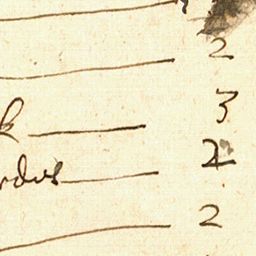 2
k 3
rdus 2
2